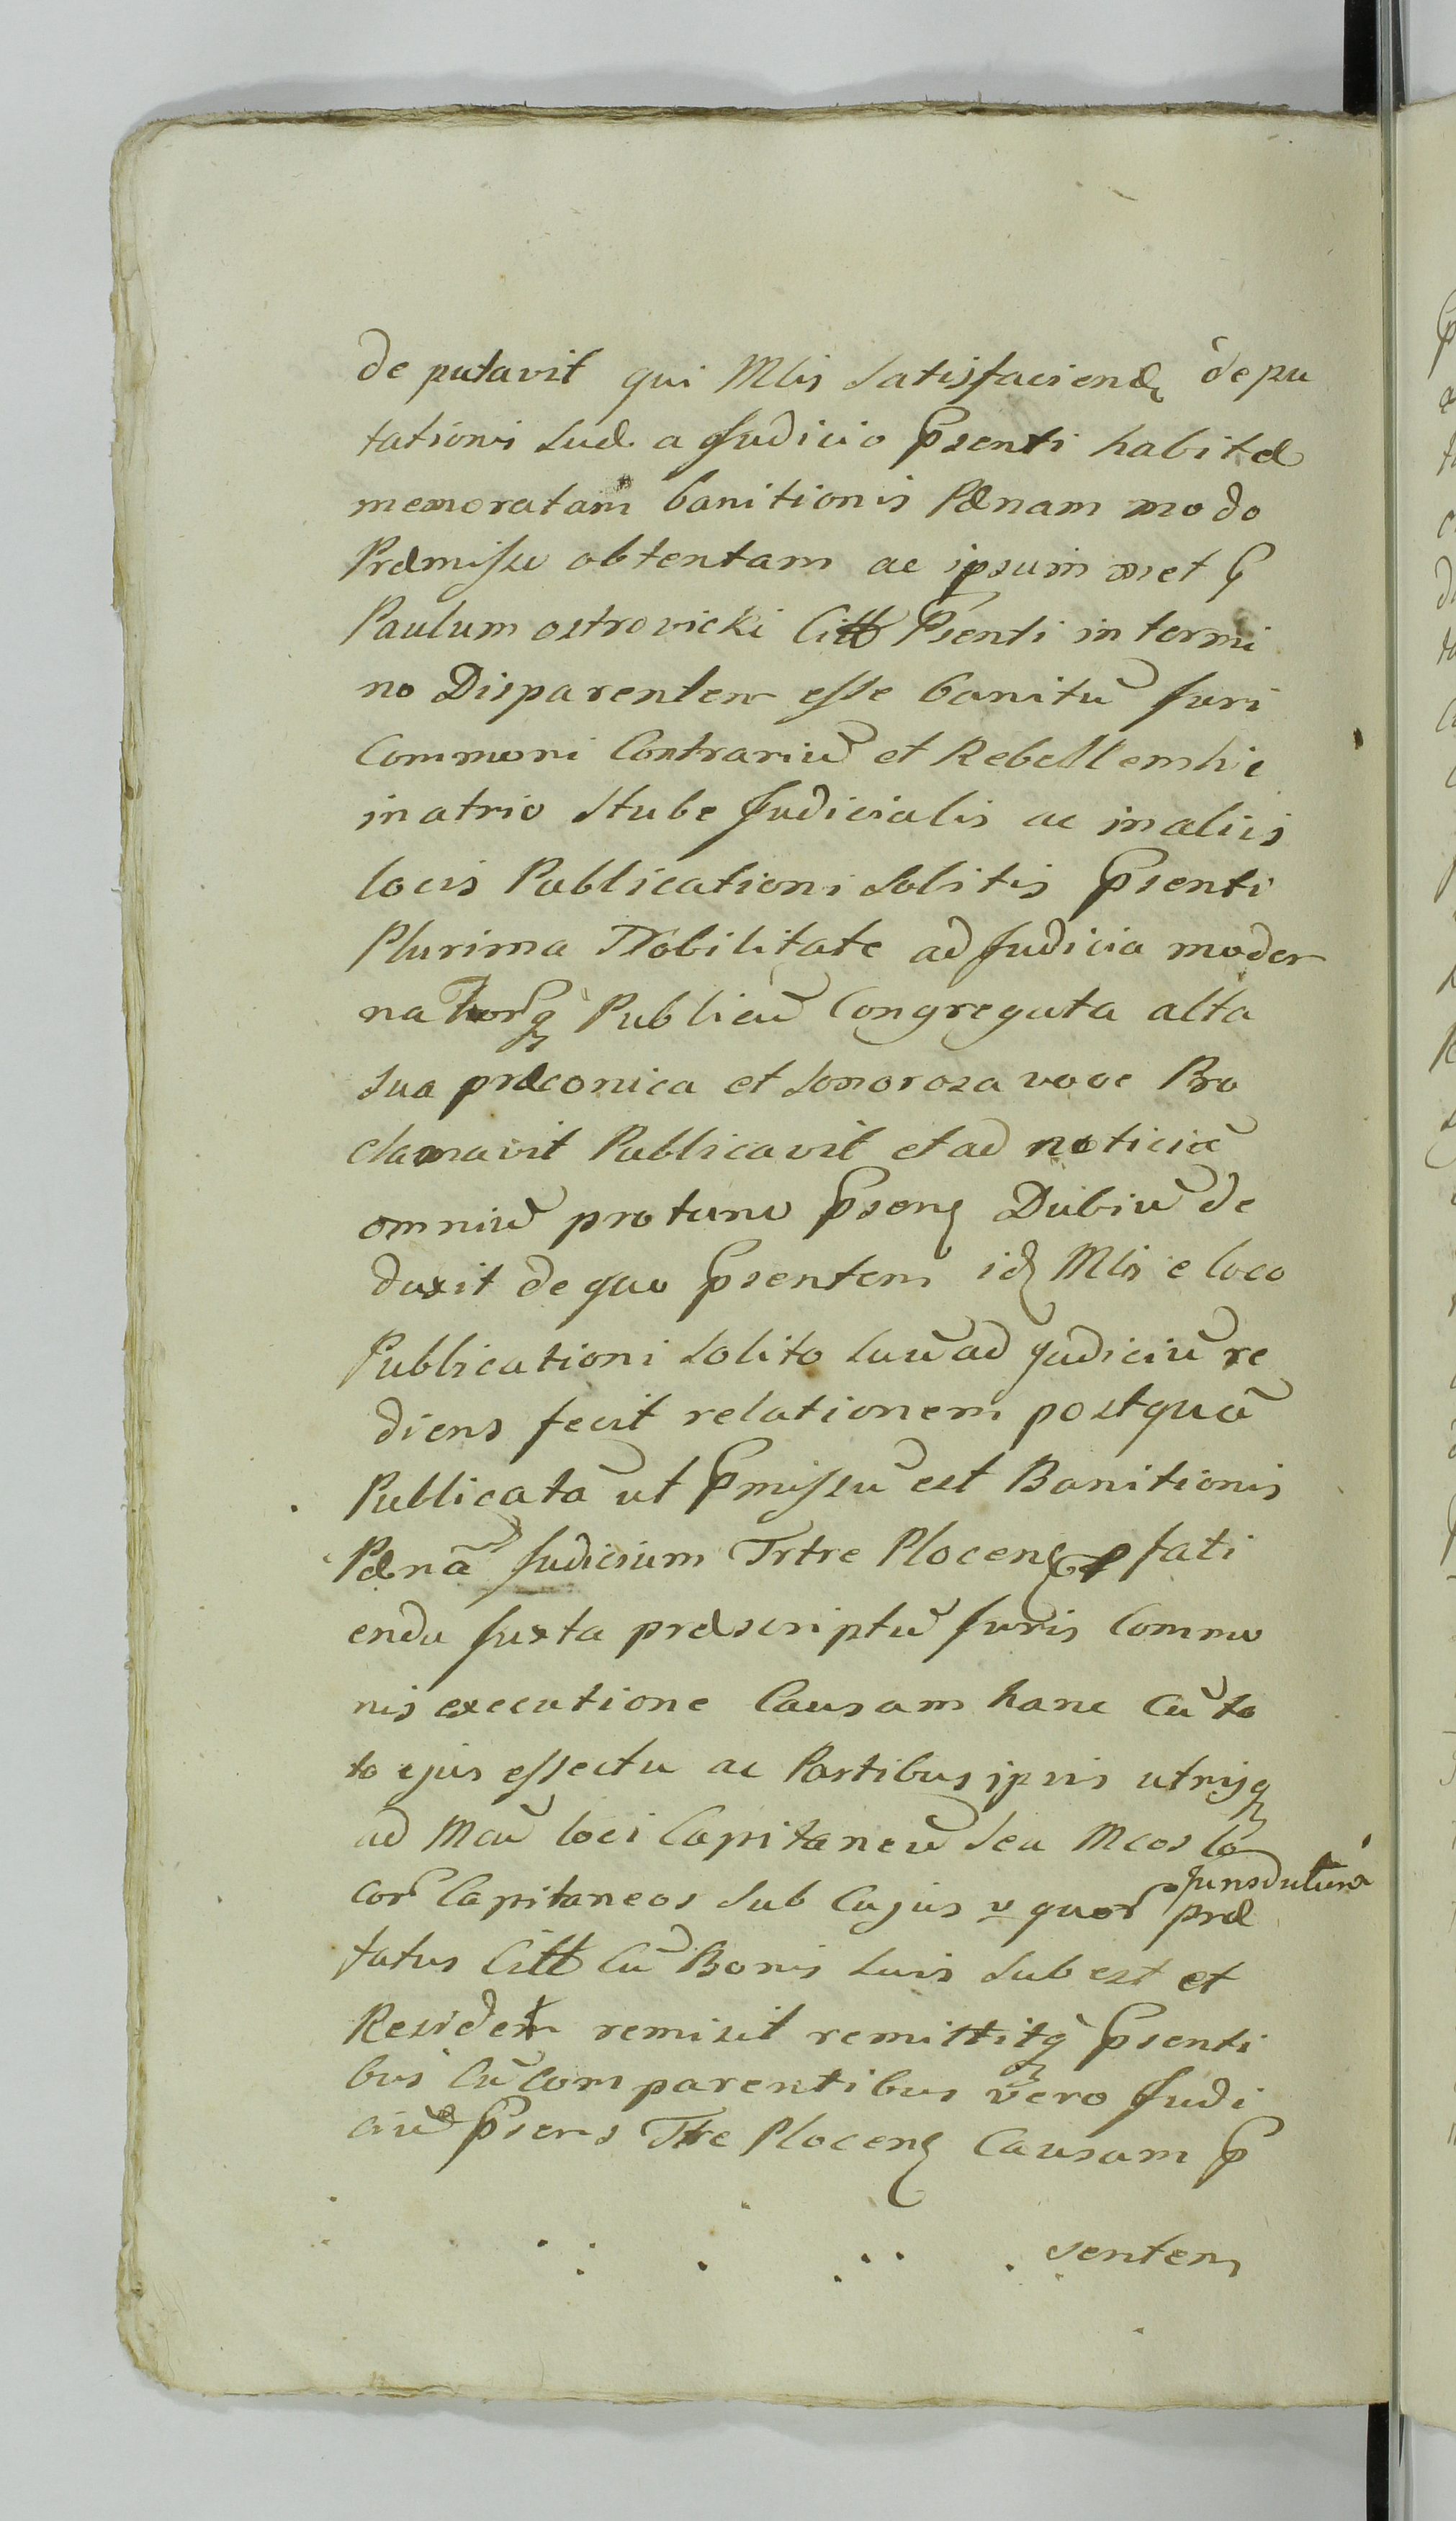 de putavit qui Mlis Satisfaciend depu
tationi suæ a Judicio Psenti habitæ
memoratam banitionis Pænam modo
Præmisso obtentam ac ipsum met G
Paulum ostrovicki Citt Psenti in termi
no Disparentem esse banitū Juri
Communi Contrariū et Rebellem hic
in atrio Stube Judicialis ac in aliis
locis Publicationi Solitis Psenti
Plurima Nobilitate ad Judicia moder
na Publicū Congregata alta
sua præconica et Sonorosa voce Pro
clamavit Publicavit et ad noticiā
omniū pro tunc Psen Dubiū de
duxit de quo Psentem id Mlis e loco
Publicationi Solito Suū ad Judiciū re
diens fecit relationem postquā
Publicatā ut Pmissū est Banitionis
Pænā Judicium Trtre Plocen fati
endu Juxta præscriptū Juris Commu
nis executione Causam hanc Cū to
to ejus effectu ac Partibus ipsis utrisq
ad Mcū loci Capitaneū Seu Mcos lo
cor Capitaneos Sub Cujus v quor Jurisdictione præ
fatus Citt Cū Bonis Suis Sub est et
Residet remisit remittitq Psenti
bus Cū Comparentibus vero Judi
ciū Psens Ttre Plocen Causam P
sentem